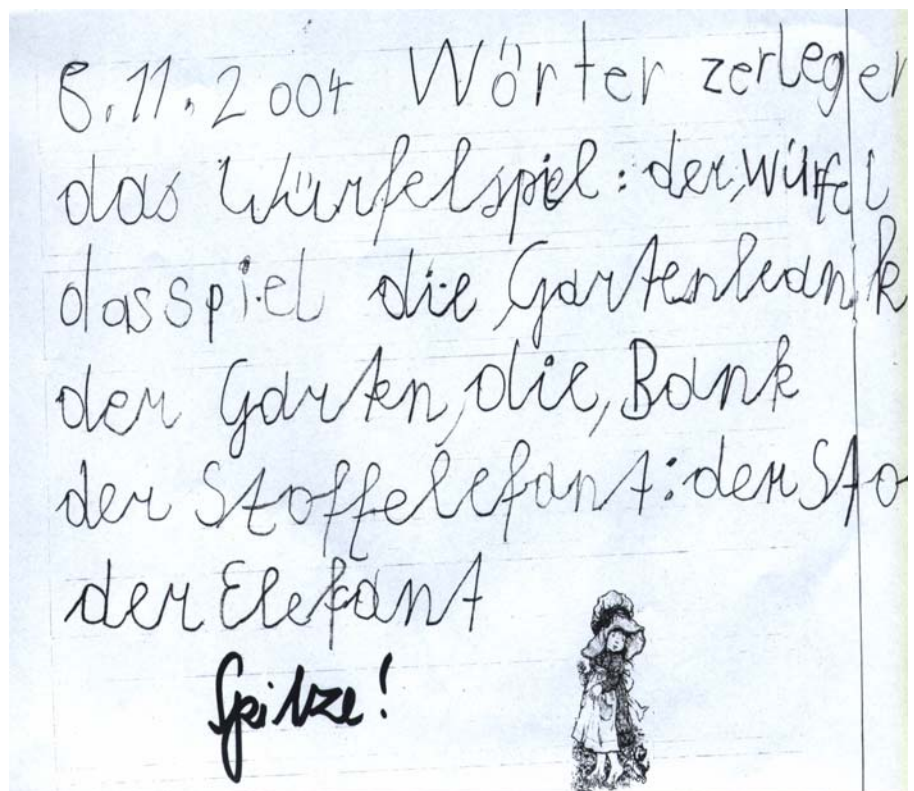 8.11.2004 Wörter zerlegen
das Würfelspiel: der, Würfel
das spiel die Gartenbank
der Garten, die, Bank
der Stoffelefant: der Sto
der Elefant
Spitze!